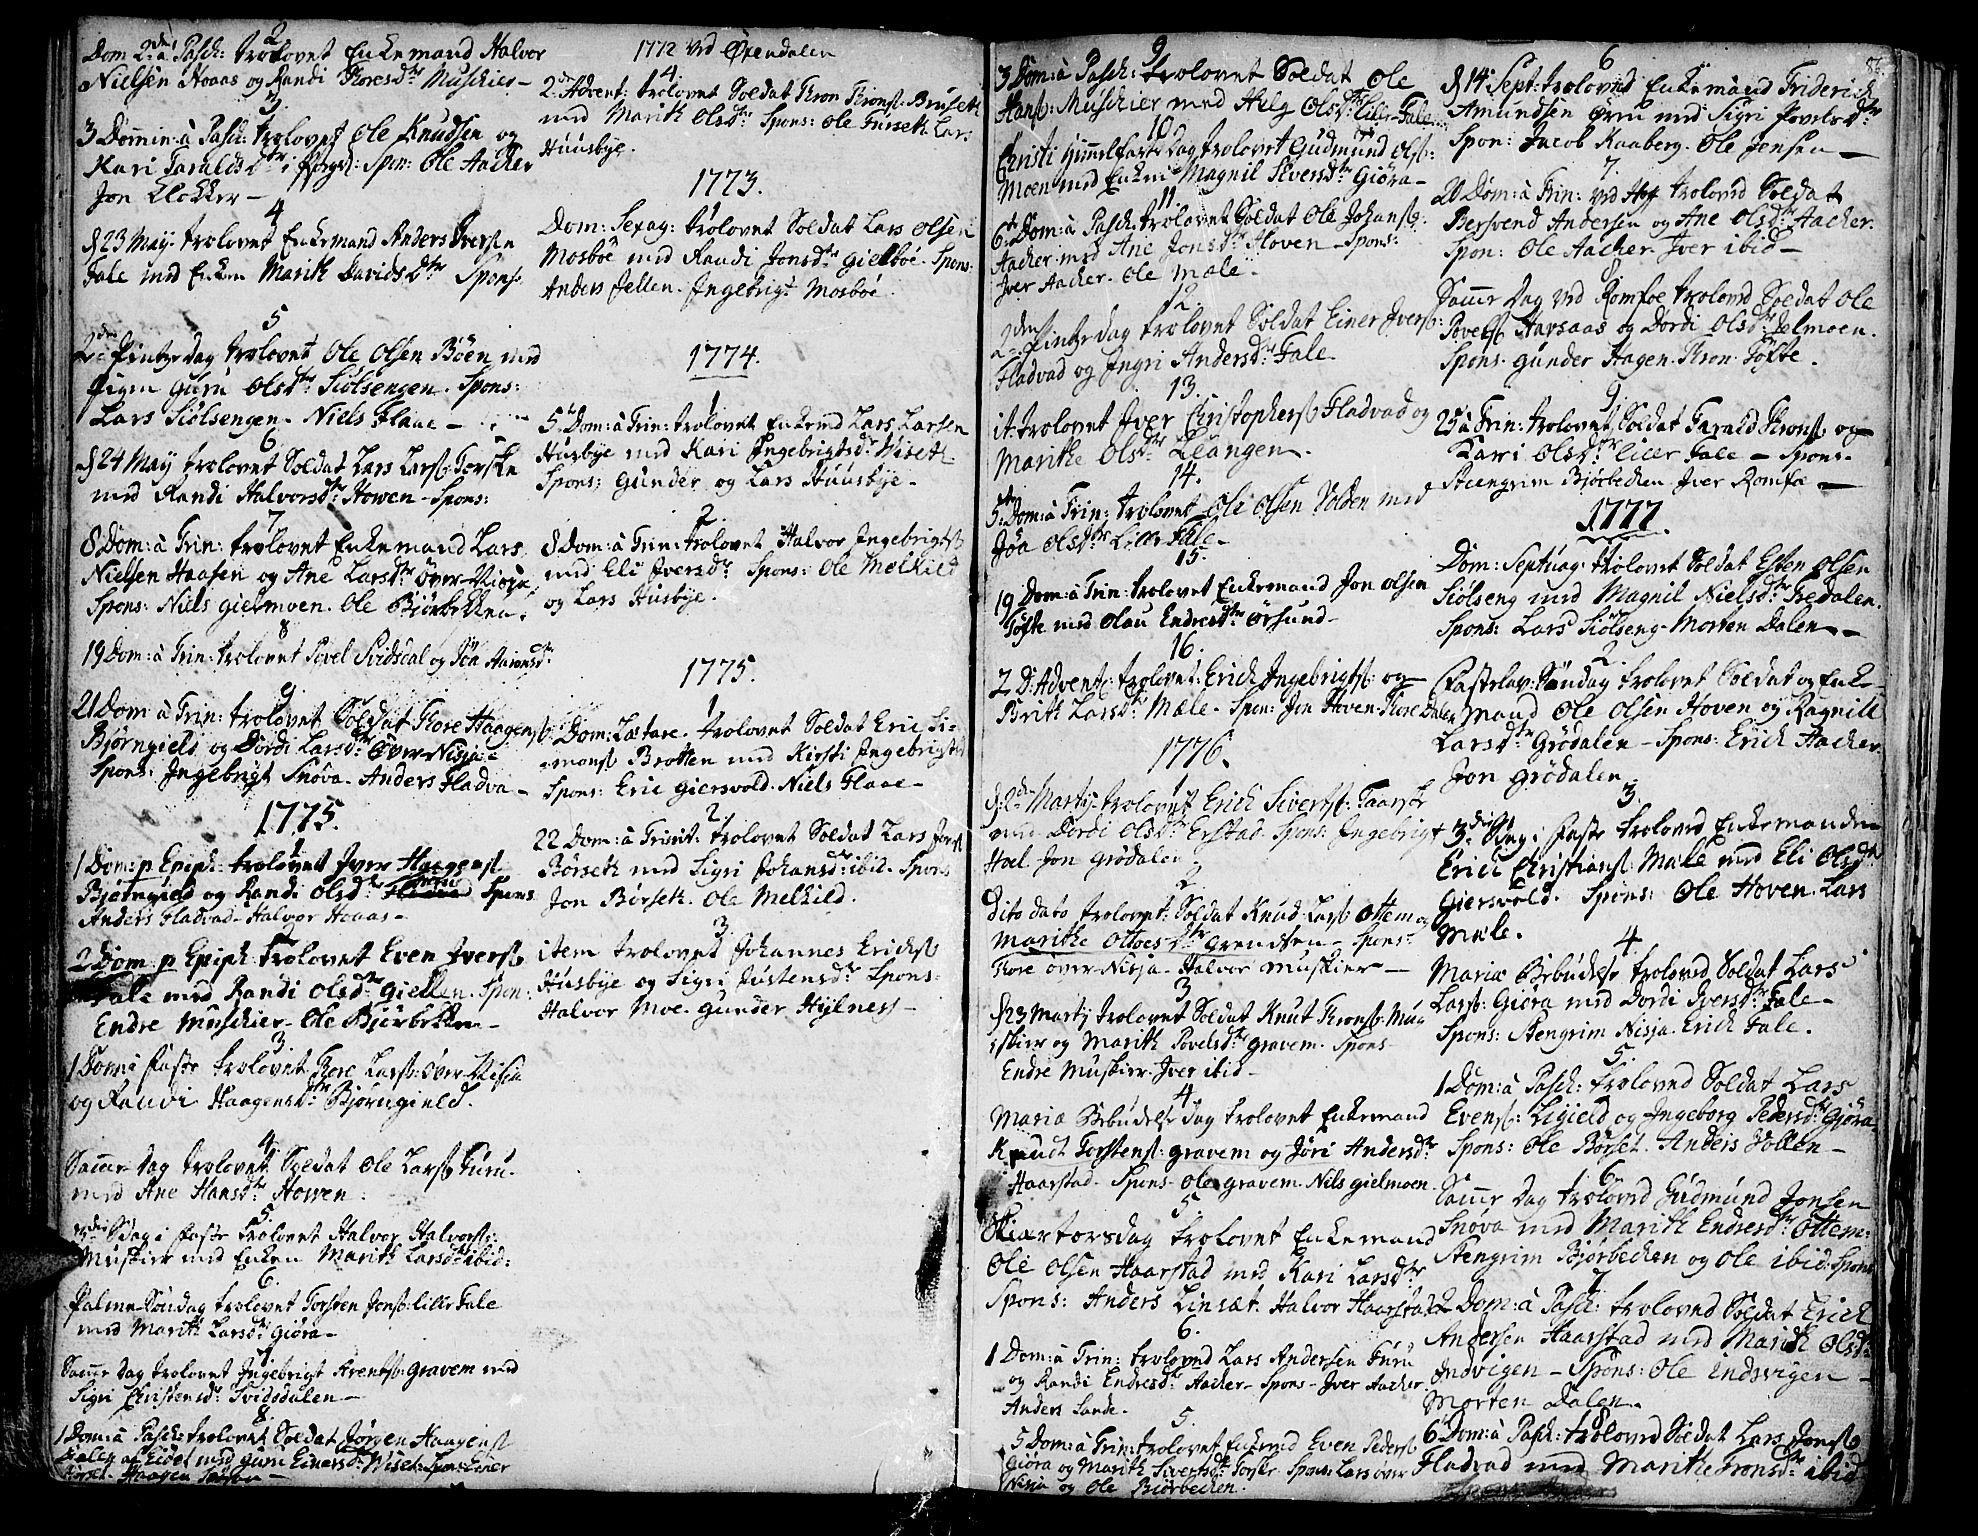 2
Dom 2den à Pasch: trolovet Enkemand Halvor
Nielsen Hoaas og Randi Thoresdtr Muschier-
3
3 Domin: à Pasch: trolovet Ole Knudsen og
Kari Taraldsdtr: Spon: Ole Aacker
Jon Klocker-
4
d 23 May. trolovet Enkemand Anders Iversen
Fale med Enken Marith Davidsdtr Spons
5
2den Pintzedag trolovet Ole Olsen Böen med
Pigen Guru Olsdtr Siölsengen. Spons:
Lars Siölsengen. Niels Flaae-
6
d 24 May trolovet Soldat Lars Larss: Torske
med Randi Halvorsdtr Howen-Spons:
7
8 Dom: à Trin: trolovet Enkemand Lars
Nielsen Haasen og Ane Larsdtr Över-Nisja
Spons: Niels Gielmoen. Ole Biörbekken.
8
19 Dom: à Trin: trolovet Povel Svidsdal og Jöa Aaronsdtr
9
21 Dom à Trin: trolovet Soldat Thore Haagens:
Björngield og Dordi Larsdtr Över-Nisja-
Spons: Ingebrigt Snöva. Anders Fladva-
1775.
1
1 Dom: p Epiph: trolovet Iver Haagens:
Björngield og Randi Olsdtr Spons
Anders Fladvad-Halvor Hoaas-
2
2 Dom: p Epiph: trolovet Even Iverss
Fale med Randi Olsdtr Giellen. Spon:
Endre Muschier-Ole Biörbekken-
3
1 Dom: i Faste trolovet Thore Larss: Över-Nisja
og Randi Haagensdtr Björngield.
4
Same Dag trolovet Soldat Ole Larss Furu.
med Ane Hansdtr Howen:
5.
3die Sdag i Faste trolovet Halvor Halvorss:
Muskier med Enken Marith Larsdtr ibid:
6.
Palme-Söndag trolovet Torsten Jonss: Lille Fale
med Marith Larsdtr Giöra-
7
Same Dag trolovet Ingebrigt Arentss: Gravem med
Sigri Christensdtr Svidsdalen-
8.
1 Dom: à Pasch: trolovet Soldat Jörgen Haagens:
af Eidet med Guru Einersdtr Wiset. Spon: Einer
Haagen
1772 ved Öxendalen
4.
2den Advent: trolovet Soldat Thron Throns: Bruseth
med Marith Olsdtr Spons: Ole Furseth Lars
Huusbye.
1773.
1
Dom: Sexag: trolovet Soldat Lars Olsen
Mosböe med Randi Jonsdtr Gielböe. Spons:
Anders Jellen. Ingebrigt Mosböe
1774.
1
5te Dom: à Trin: trolovet Enkemd Lars Larsen
Husbye med Kari Ingebrigtsdtr Wiseth-
Spons: Gunder og Lars Huusbye-
2.
8 Dom: à Trin: trolovet Halvor Ingebrigts:
med Eli Iversdtr Spons: Ole Melkild
og Lars Husbye.
1775.
1
Dom: Lætare. trolovet Soldat Eric Si-
monss Brotten med Kirsti Ingebrigtsd
Spons: Eric Giersvold. Niels Flaae-
2.
22 Dom: à Trinit: trolovet Soldat Lars Jons:
Börseth med Sigri Johansdtr: ibid-Spons
Jon Börseth. Ole Melkild.
3.
item trolovet Johannes Ericks:
Husbye og Sigri Justensdtr Spons:
Halvor Moe. Gunder Hylness-
9
3 Dom: à Pasch: trolovet Soldat Ole
Hanss: Muschier med Helg Olsdtr Lille-Fale
10
Christi Himelfarts Dag trolovet Gudmund Olss:
Moen med Enken Magnil Siversdtr Giöra-
11.
6te Dom: à Pasch: trolovet Soldat Ole Johans:
Aacker med Ane Jonsdtr Hoven-Spons:
Iver Aacker. Ole Mæle-
12.
2den Pintzedag trolovet Soldat Einer Iverss:
Fladvad og Ingri Andersdtr Fale.
13.
it: trolovet Iver Christophers: Fladvad og
Marithe Olsdtr Klangen.
14.
5te Dom: à Trin: trolovet Ole Olsen Volden med
Jöa Olsdtr Lille Fale-
15.
19 Dom: à Trin: trolovet Enkemand Jon Olsen
Töfte med Olau Endresdtr Örsund-
16.
2 D: Advents: trolovet: Erich Ingebrigts: og
Brith Larsdtr Mæle. Spon: Jon Hoven. Thore Dalen
1776.
1
d. 2den Martij trolovet Erich Sivertss: Taarsk
med Dordi Olsdtr Erstad-Spons: Ingebrigt
Hoel-Jon Grödalen.
2
Dito dato trolovet: Soldat Knud Larss Ottem og
Marithe Ottoesdtr Grendsen-Spons:
Thore Över-Nisja-Halvor Muskier-
3
d 23 Martij trolovet Soldat Knut Throns: Mu-
skier og Marith Povelsdtr Gravem. Spons-
Endre Muskier. Iver ibid-
4.
Maria Bebudelse Dag trolovet Enkemand
Knudt Torstens: Gravem og Jöri Andersdtr
Haarstad-Spons-Ole Gravem. Nils Gielmoen.
5.
Skiærtorsdag trolovet Enkemand
Ole Olsen Haarstad med Kari Larsdtr
Spons: Anders Linset. Halvor Haarstad
6.
1 Dom: à Trin: trolovet Lars Andersen Furu
og Randi Endresdtr Aacker-Spons-Iver Aacker.
Anders Sande.
5.
5 Dom: à Trin: trolovet Enkemd Even Peders:
Giöra og Marith Sivertsdtr Torske. Spons: Lars Över
Nisja og Ole Biörbecken.
6
d 14 Sept: trolovd Enkemand Friderich
Amundsen Ören med Sigri Povelsdtr
Spon: Jacob Kaaberg. Ole Jensen-
7.
20 Dom: à Trin: ved trolovd Soldat
Bersvend Andersen og Ane Olsdtr Aacker.
Spon: Ole Aacker Iver ibid-
8
Same Dag ved Romfoe trolovd Soldat Ole
Povelss Havsaas og Dordi Olsdtr Jelmoen.
Spons. Gunder Hagen. Thron Töfte.
9.
25 à Trin: trolovet Soldat Tarald Throns: og
Kari Olsdtr Lille Fale-Spons-
Steengrim Biörbecken. Iver Romfoe-
1777.
1
Dom: Septuag: trolovet Soldat Esten Olsen
Siölseng med Magnil Nielsdtr Tredalen.
Spons: Lars Siölseng-Morten Dalen-
2
Fastelav: Söndag trolovet Soldat og Enke-
mand Ole Olsen Hoven og Ragnill
Larsdtr Grödalen-Spons: Erich Aacker.
Jon Grödalen-
3.
3die Sdag i Faste trolovd Enkemanden
Erich Christians: Mæle med Eli Olsdtr
Giersvold. Spons: Ole Hoven. Lars
Mæle.
4
Mariæ Bebudelse trolovd Soldat Lars
Larss: Giöra med Dordi Iversdtr Fale-
Spons: Stengrim Nisja. Erich Fale.
5.
1 Dom: à Pasch: trolovd Soldat Lars
Evens: Ligield og Ingeborg Pedersdtr Giöra-
Spons: Ole Börset. Anders Vollen-
6.
Same Dag trolovd Gudmund Jonsen
Snöva med Marith Endresdtr Ottem:
Stengrim Biörbecken og Ole ibid: Spons
7
2 Dom: à Pasch: trolovd Soldat Erich
Andersen Haarstad med Marith Olsdtr
Indvigen-Spons: Ole Endsvigen-
Morten Dalen.
8
6 Dom: à Pasch: trolovd Soldat Lars Jonss
Fladvad med Marithe Tronsdtr ibid